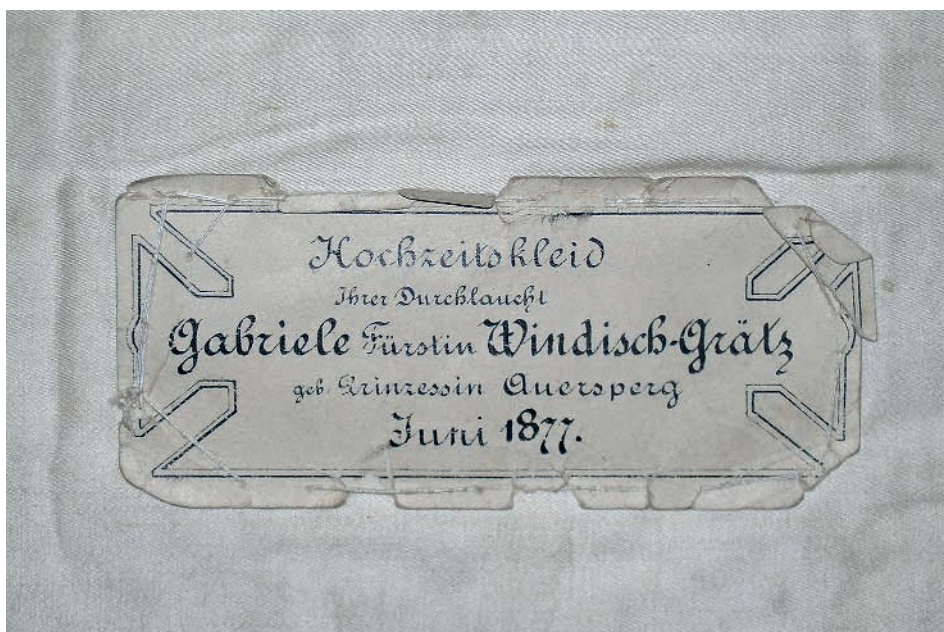 Hochzeitskleid
Ihrer Durchlaucht
Gabriele Fürstin Windisch-Grätz
geb. Prinzessin Auersperg
Juni 1877.